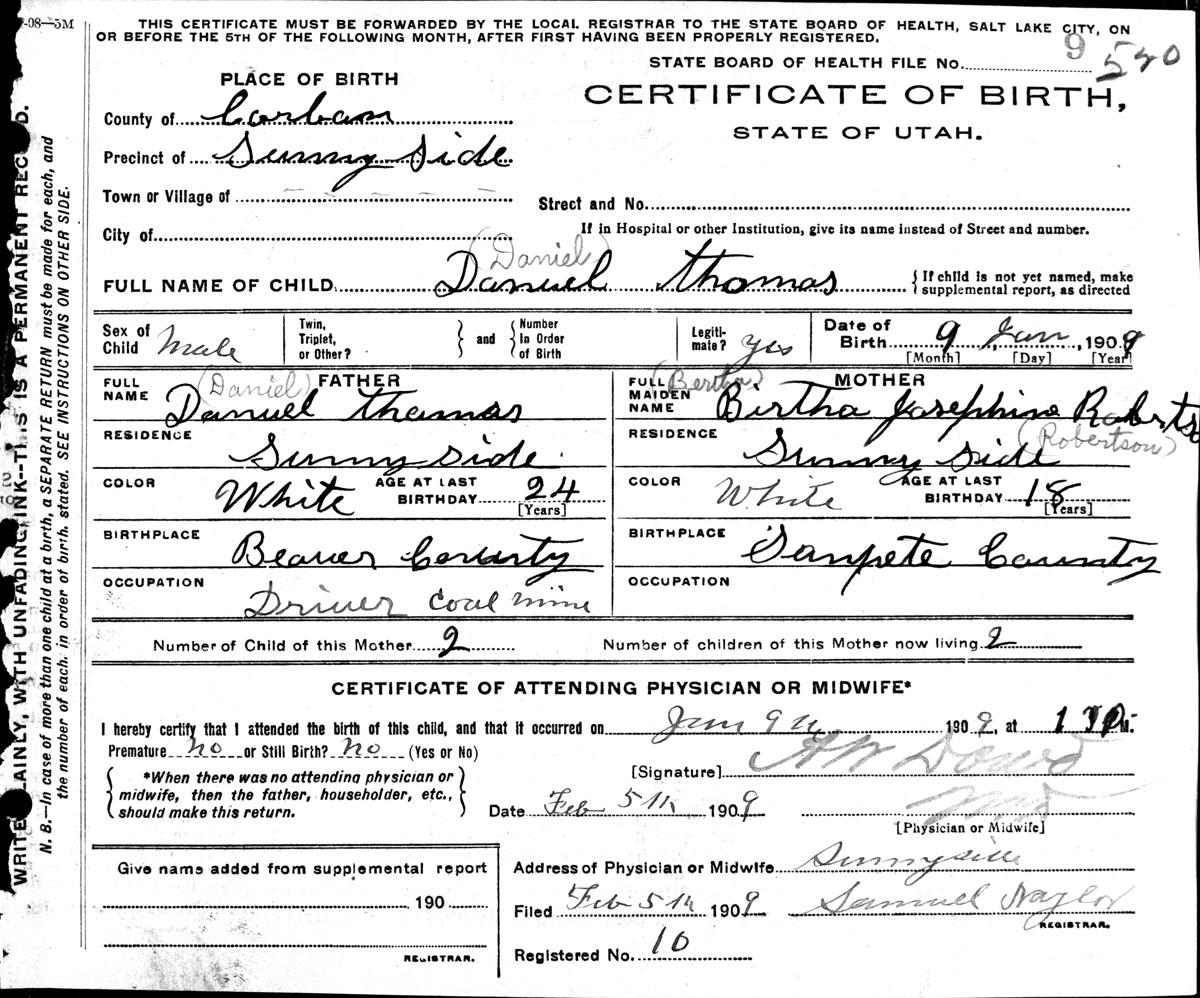 -08—5M
THIS CERTIFICATE MUST BE FORWARDED BY THE LOCAL REGISTRAR TO THE STATE BOARD OF HEALTH, SALT LAKE CITY, ON
OR BEFORE THE 5TH OF THE FOLLOWING MONTH, AFTER FIRST HAVING BEEN PROPERLY REGISTERED.
STATE BOARD OF HEALTH FILE No. 9 520
PLACE OF BIRTH
CERTIFICATE OF BIRTH,
STATE OF UTAH.
County of Corban
Precinct of Sunny side
Town or Village of
Street and No.
City of
If in Hospital or other Institution, give its name instead of Street and number.
(Daniel)
FULL NAME OF CHILD Danuel thomas { If child is not yet named, make supplemental report, as directed
Sex of Child Male Twin, Triplet, or Other? } and { Number In Order of Birth Legitimate? yes Date of Birth 9 Jan, 1909
[Month] [Day] [Year]
FATHER
FULL NAME (Daniel) Danuel thamas
RESIDENCE Sunny side
COLOR White AGE AT LAST BIRTHDAY 24 [Years]
BIRTHPLACE Beaver County
OCCUPATION Driver coal mine
MOTHER
FULL MAIDEN NAME (Bertha) Birtha Josephine Roberts
RESIDENCE Sunny side (Robertson)
COLOR White AGE AT LAST BIRTHDAY 18 [Years]
BIRTHPLACE Sanpete County
OCCUPATION
Number of Child of this Mother 2 Number of children of this Mother now living 2
CERTIFICATE OF ATTENDING PHYSICIAN OR MIDWIFE*
I hereby certify that I attended the birth of this child, and that it occurred on Jan 9th 1909, at
Premature no or Still Birth? No (Yes or No)
{ *When there was no attending physician or midwife, then the father, householder, etc., should make this return. }
[Signature] A W Dowd
Date Feb 5th 1909 MD
[Physician or Midwife]
Give name added from supplemental report
190
REGISTRAR.
Address of Physician or Midwife Sunnyside
Filed Feb 5th 1909 Samuel Naylor
REGISTRAR.
Registered No. 10
WRITE AINLY, WITH UNFADING INK--THIS IS A PERMANENT REC D.
N. B.—In case of more than one child at a birth, a SEPARATE RETURN must be made for each, and
the number of each, in order of birth, stated. SEE INSTRUCTIONS ON OTHER SIDE.